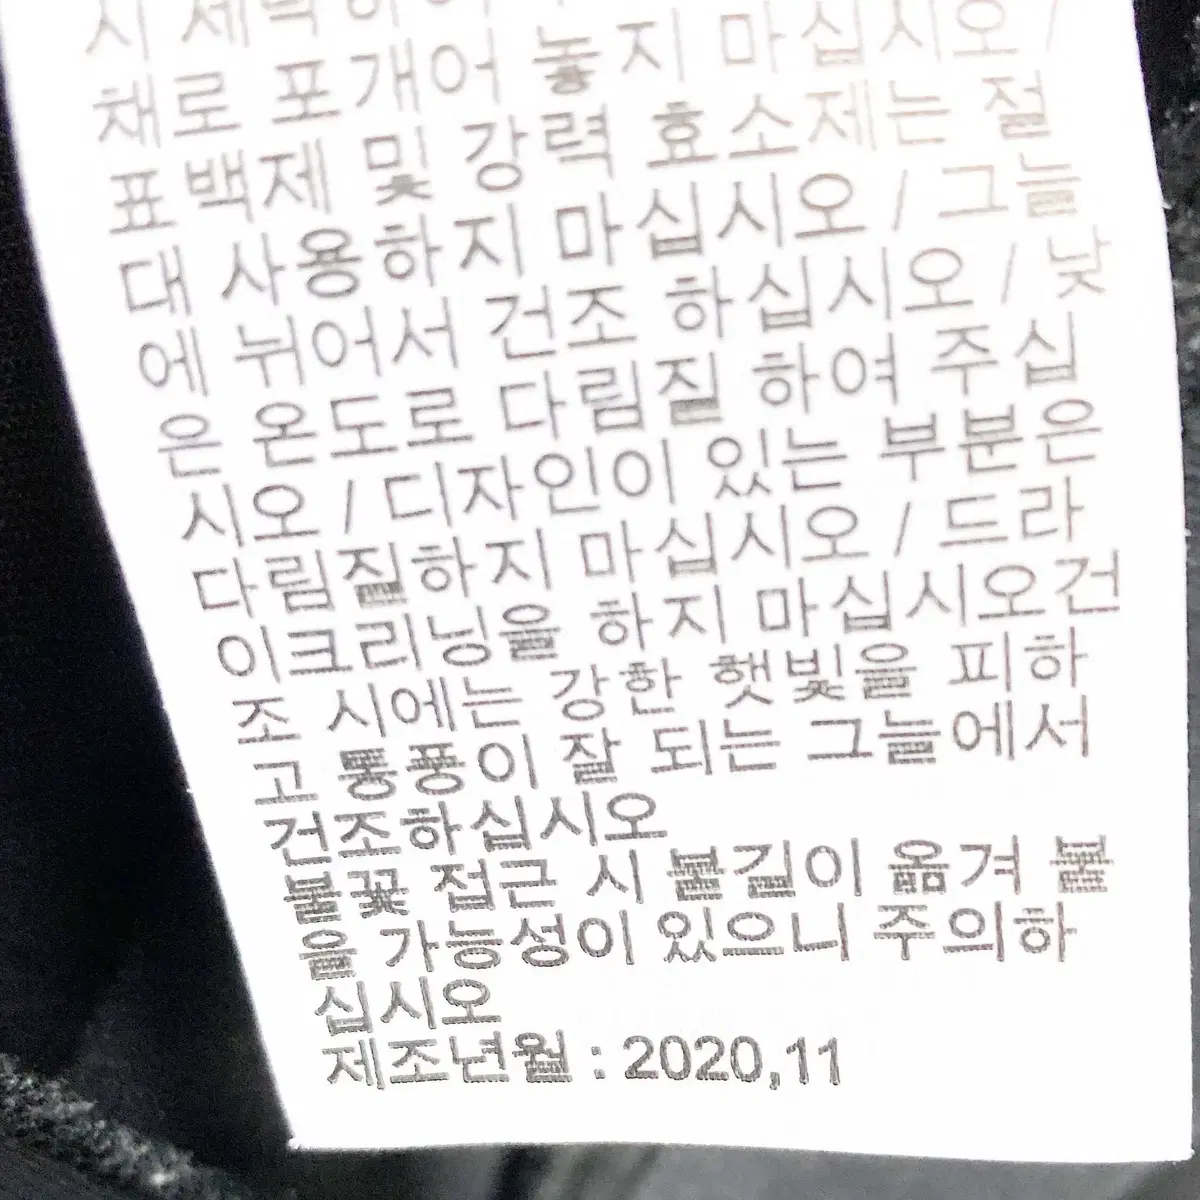 시 세탁하
채로 포개어 놓지 마십시오 /
표백제 및 강력 효소제는 절
대 사용하지 마십시오 / 그늘
에 뉘어서 건조 하십시오 / 낮
은 온도로 다림질 하여 주십
시오 / 디자인이 있는 부분은
다림질하지 마십시오 / 드라
이크리닝을 하지 마십시오건
조 시에는 강한 햇빛을 피하
고 통풍이 잘 되는 그늘에서
건조하십시오
불꽃 접근 시 불길이 옮겨 붙
을 가능성이 있으니 주의하
십시오
제조년월 : 2020,11